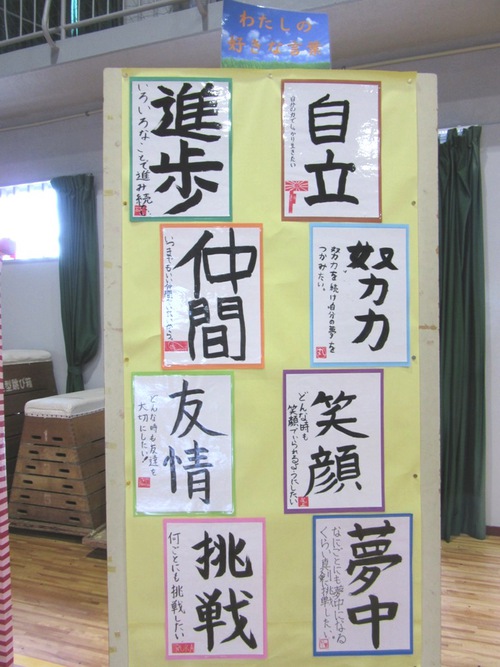 わたしの
好きな言葉
進歩
いろいろなことで進み続
自立
仲間
努力
努力を続け自分の夢を
つかみたい。
友情
どんな時も友達を
大切にしたい!
笑顔
どんな時も
笑顔でいられるようにしたい
挑戦
何ごとにも挑戦したい
夢中
なにごとにも夢中になる
くらい真剣に挑戦したい
型跳び箱